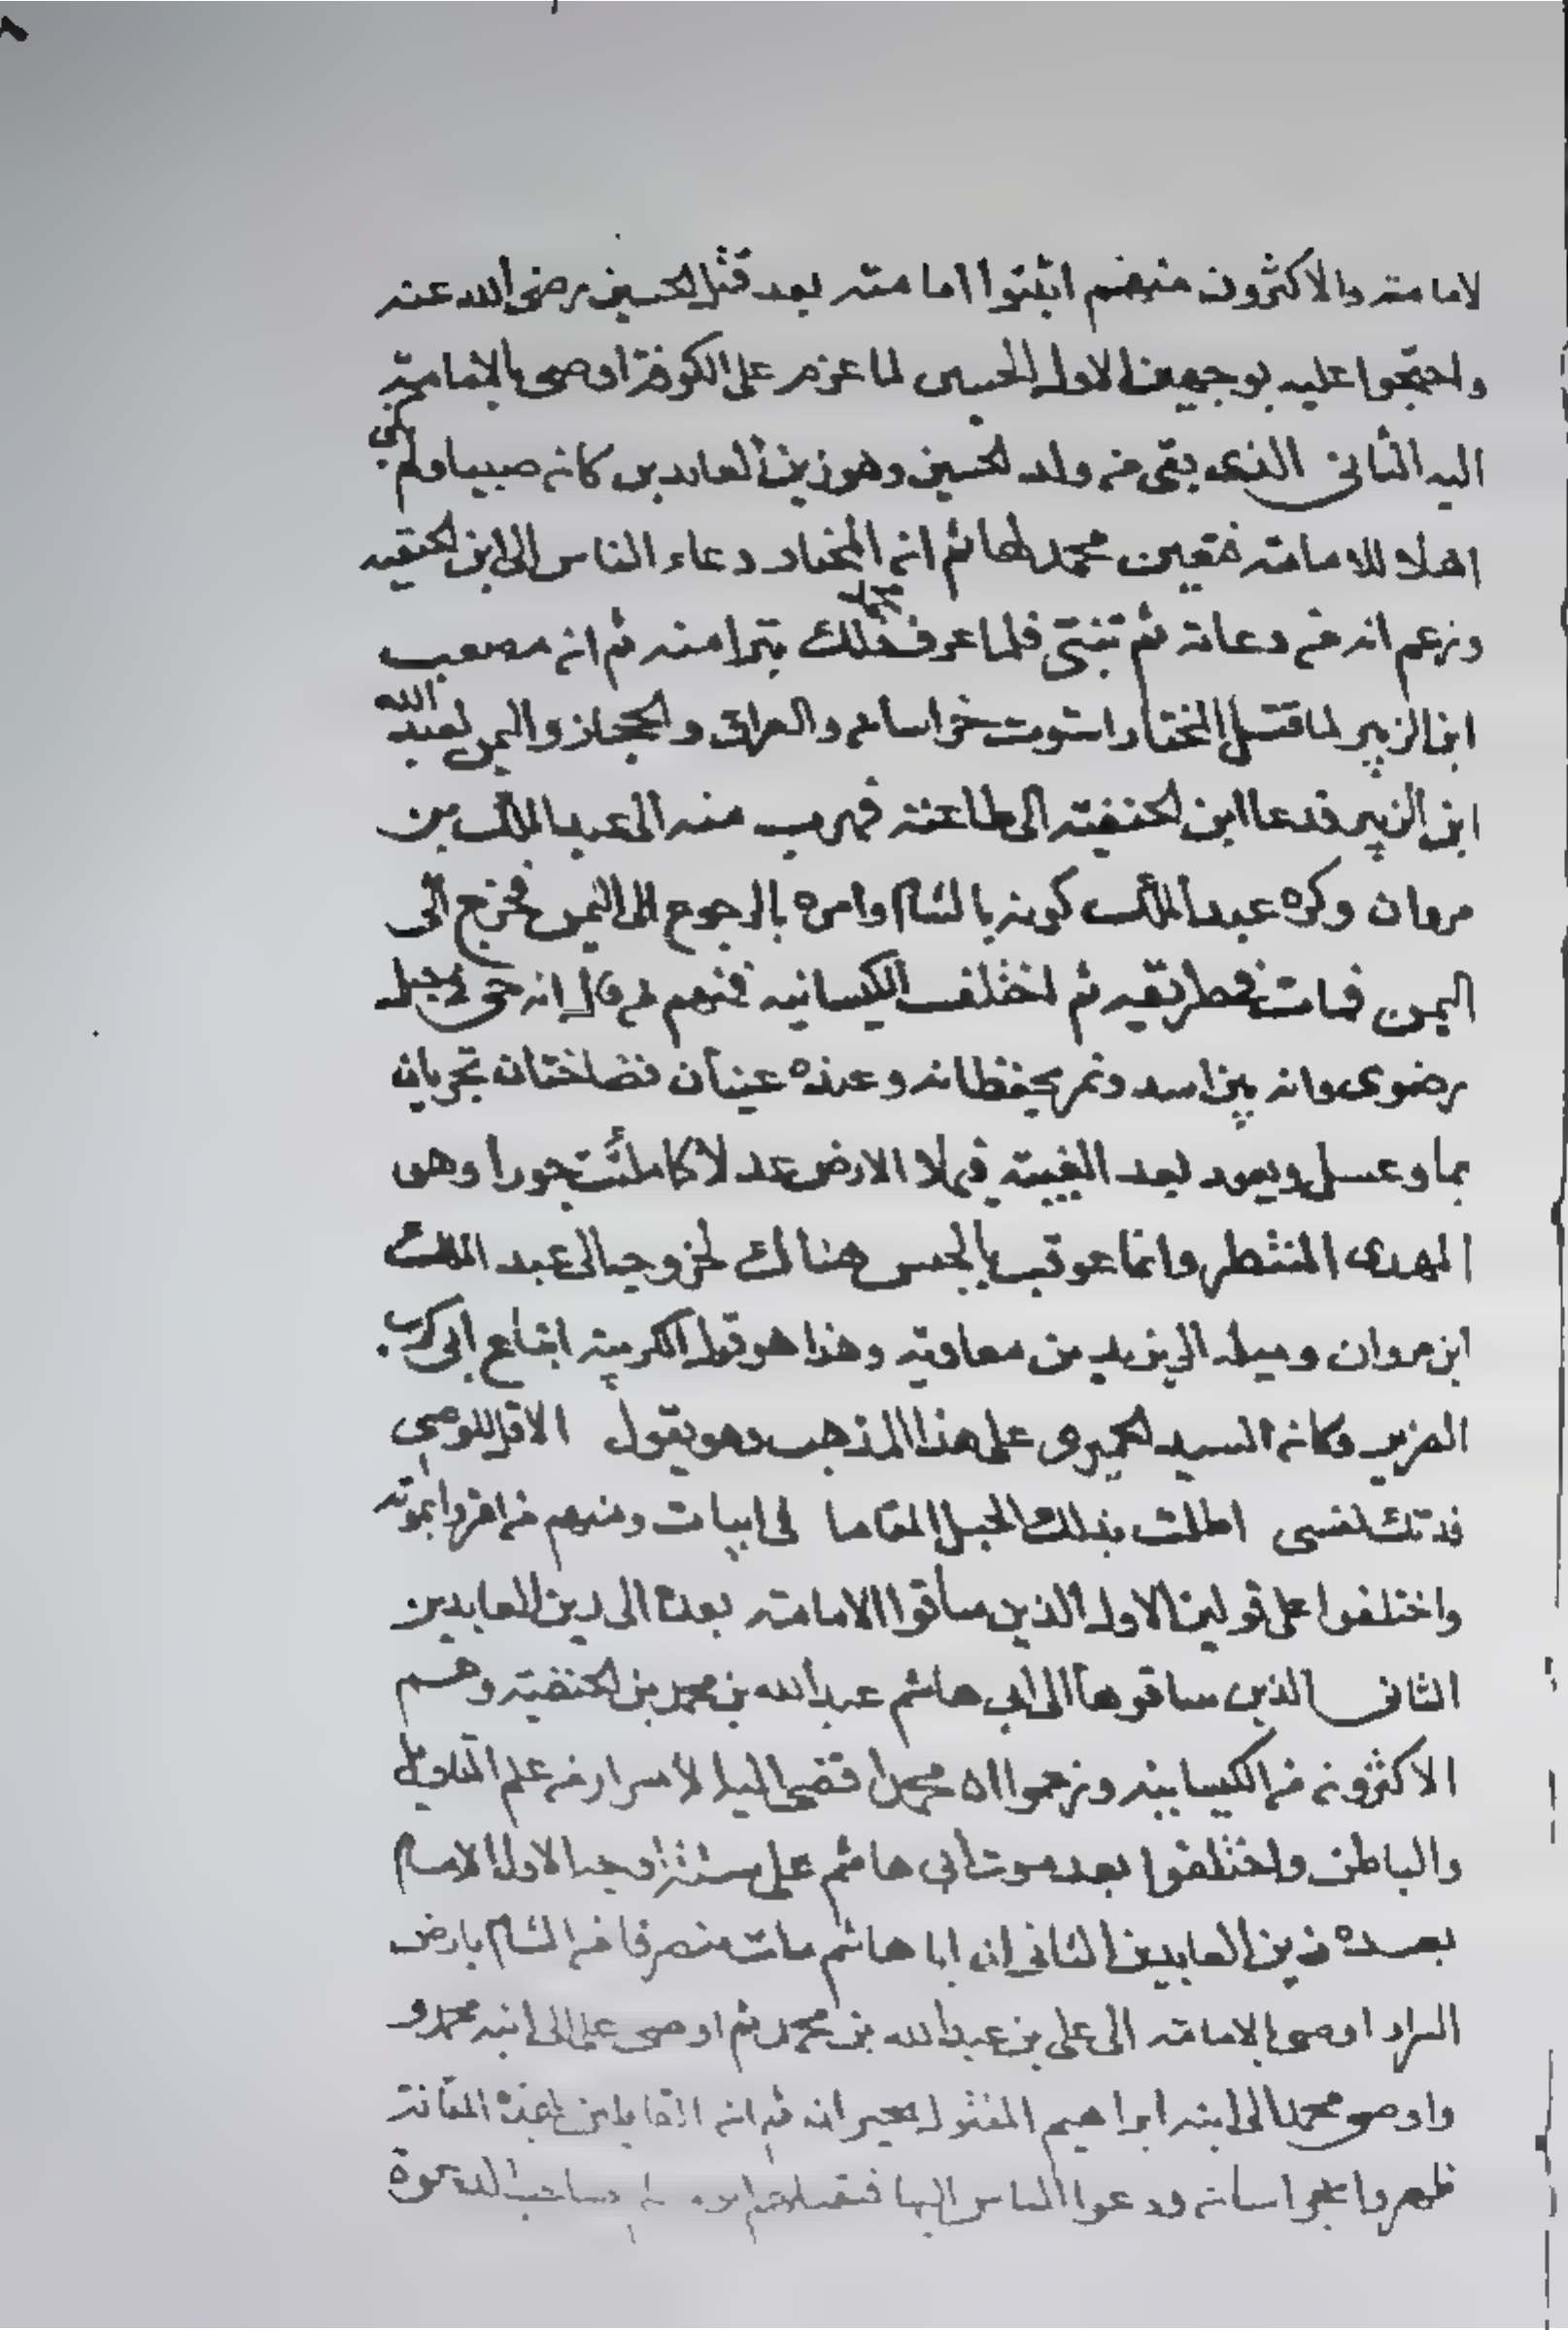 لامامته والاكثرون منهم اثبتوا امامته بعد قتل الحسين رضى الله عنه
واحتجوا عليه بوجهين الاول الحسين لما عزم على الكوفة اوصى بالامامة
اليه الثانى الذى بقى من ولد الحسين وهو زين العابدين كان صبيا ولم يكن
اهلا للامامة فتعين محمد لها ثم ان المختار دعاء الناس الى ابن الحنفيه
وزعم انه من دعاته ثم تبنى فلما عرف محمد ذلك تبرا منه ثم ان مصعب
ابن الزبير لما قتل المختار استوت خراسان والعراق والحجاز واليمن لعبد الله
ابن الزبير فدعا ابن الحنفية الى طاعته فهرب منه الى عبد الملك بن
مروان وكره عبد الملك كونه بالشام وامره بالرجوع الى اليمن فخرج الى
اليمن فمات فى طريقه ثم اختلف الكيسانيه فمنهم من قال انه حى فى جبل
رضوى وانه بين اسد ونمر يحفظانه وعنده عينان نضاختان تجريان
بما وعسل ويعود بعد الغيبة فيملا الارض عدلا كما ملئت جورا وهو
المهدى المنتظر وانما عوقب بالحبس هنالك لخروجه الى عبد الملك
ابن مروان وميله الى يزيد بن معاوية وهذا هو قول الكربية اتباع ابى كرب
الضرير وكان السيد الحميرى على هذا المذهب وهو يقول الا قل للوصى
فدتك نفسى اطلت بذلك الجبل المقاما فى ابيات ومنهم من اقروا بموته
واختلفوا على قولين الاول الذين ساقوا الامامة بعده الى زين العابدين
الثانى الذين ساقوها الى ابى هاشم عبد الله بن محمد بن الحنفية وهم
الاكثرون من الكيسانيه وزعموا ان محمدا قضى اليه الاسرار من علم التاويل
والباطن واختلفوا بعد موت ابى هاشم على ستة اوجه الاول الامام
بعده زين العابدين الثانى ان ابا هاشم مات منصرفا من الشام بارض
السراه اوصى بالامامة الى على بن عبد الله بن محمد ثم اوصى على الى ابنه محمد و
واوصى محمد الى ابنه ابراهيم المقتول بحيران ثم ان القايلين بهذه المقالة
ظهروا بخراسان ودعوا الناس اليها فقبلها ابو صاحب الدعوة